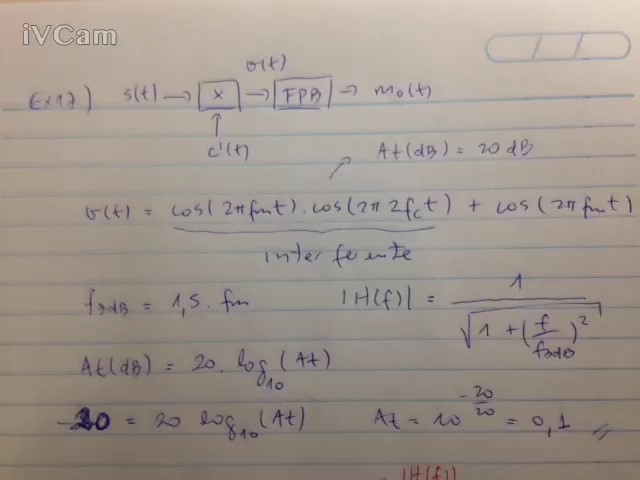 iVCam
Ex17) s(t) → x → v(t) → FPB → mo(t)
c'(t)
At(dB) = 20 dB
v(t) = cos(2πfmt).cos(2π2fct) + cos(2πfmt)
interferente
f3dB = 1,5. fm |H(f)| = 1 / √(1 + (f/f3dB)²)
At(dB) = 20. log10(At)
-20 = 20 log10(At) At = 10^(-20/20) = 0,1 //
|H(f)|